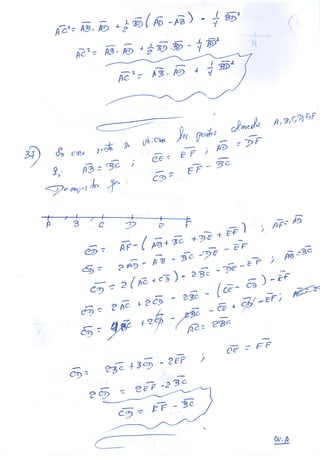 AC² = AB. AD + ½ BD (AD - AB) - ¼ BD²
AC² = AB. AD + ½ BD. BD - ¼ BD²
AC² = AB. AD + ¼ BD²
37) En una se ubican los puntos A, B, C, D, E, F
Si AB = BC ; CE = EF ; AD = DF
Demostrar que CD = EF - BC
A B C D E F
CD = AF - (AB + BC + DE + EF) ;
CD = 2AD - AB - BC - DE - EF
CD = 2(AC + CD) - 2BC - DE - EF ; AB = BC
CD = 2AC + 2CD - 2BC - (CE - CD) - EF
CD = 4BC + 2CD - 2BC - CE + CD - EF ;
AC = 2BC
CD = 2BC + 3CD - 2EF ; CE = EF
2CD = 2EF - 2BC
CD = EF - BC